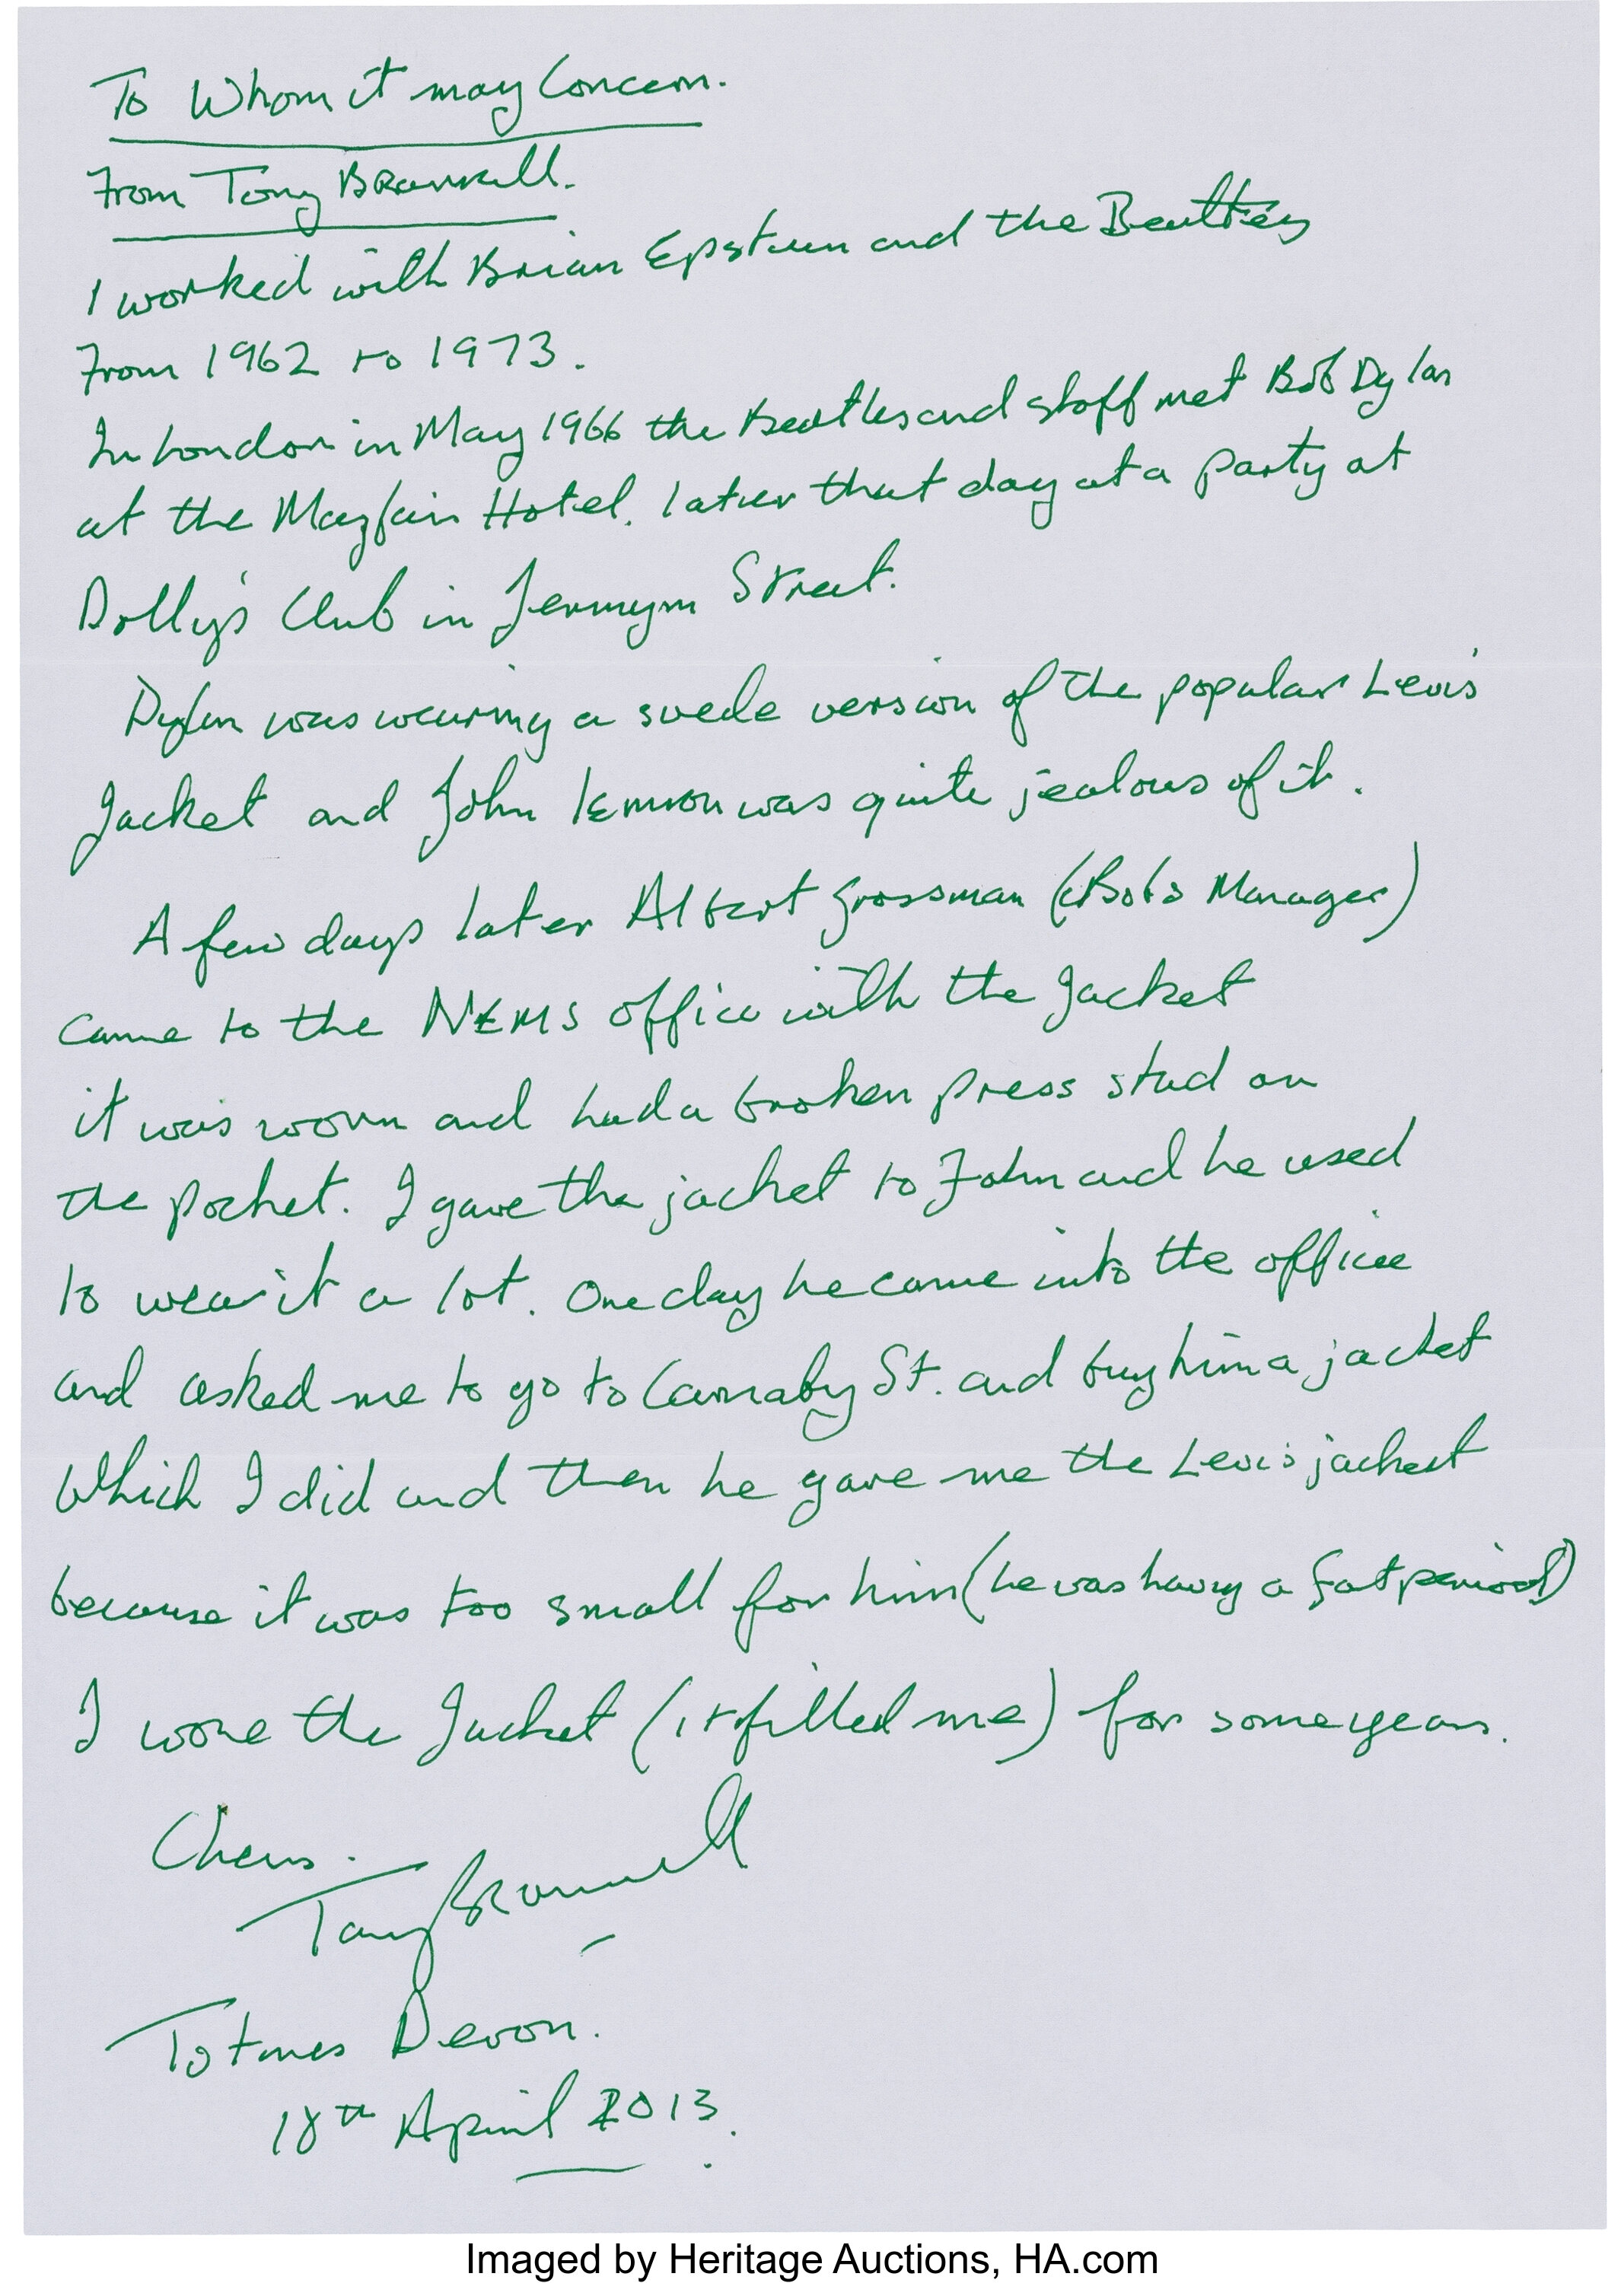 To Whom it may Concern.
From Tony Bramwell.
I worked with Brian Epstein and the Beatles
From 1962 to 1973.
In London in May 1966 the Beatles and staff met Bob Dylan
at the Mayfair Hotel. later that day at a party at
Dolly's Club in Jermym Street.
Dylan was wearing a suede version of the popular Levis'
Jacket and John lennon was quite jealous of it.
A few days later Albert Grossman (Bob's Manager)
came to the NEMS office with the Jacket
it was worn and had a broken press stud on
the pocket. I gave the jacket to John and he used
to wear it a lot. One day he came into the office
and asked me to go to Carnaby St. and buy him a jacket
Which I did and then he gave me the Levis jacket
because it was too small for him (he was having a fat period)
I wore the Jacket (it fitted me) for some years.
Cheers.
Tony Bramwell
Totnes Devon.
18th April 2013.
Imaged by Heritage Auctions, HA.com